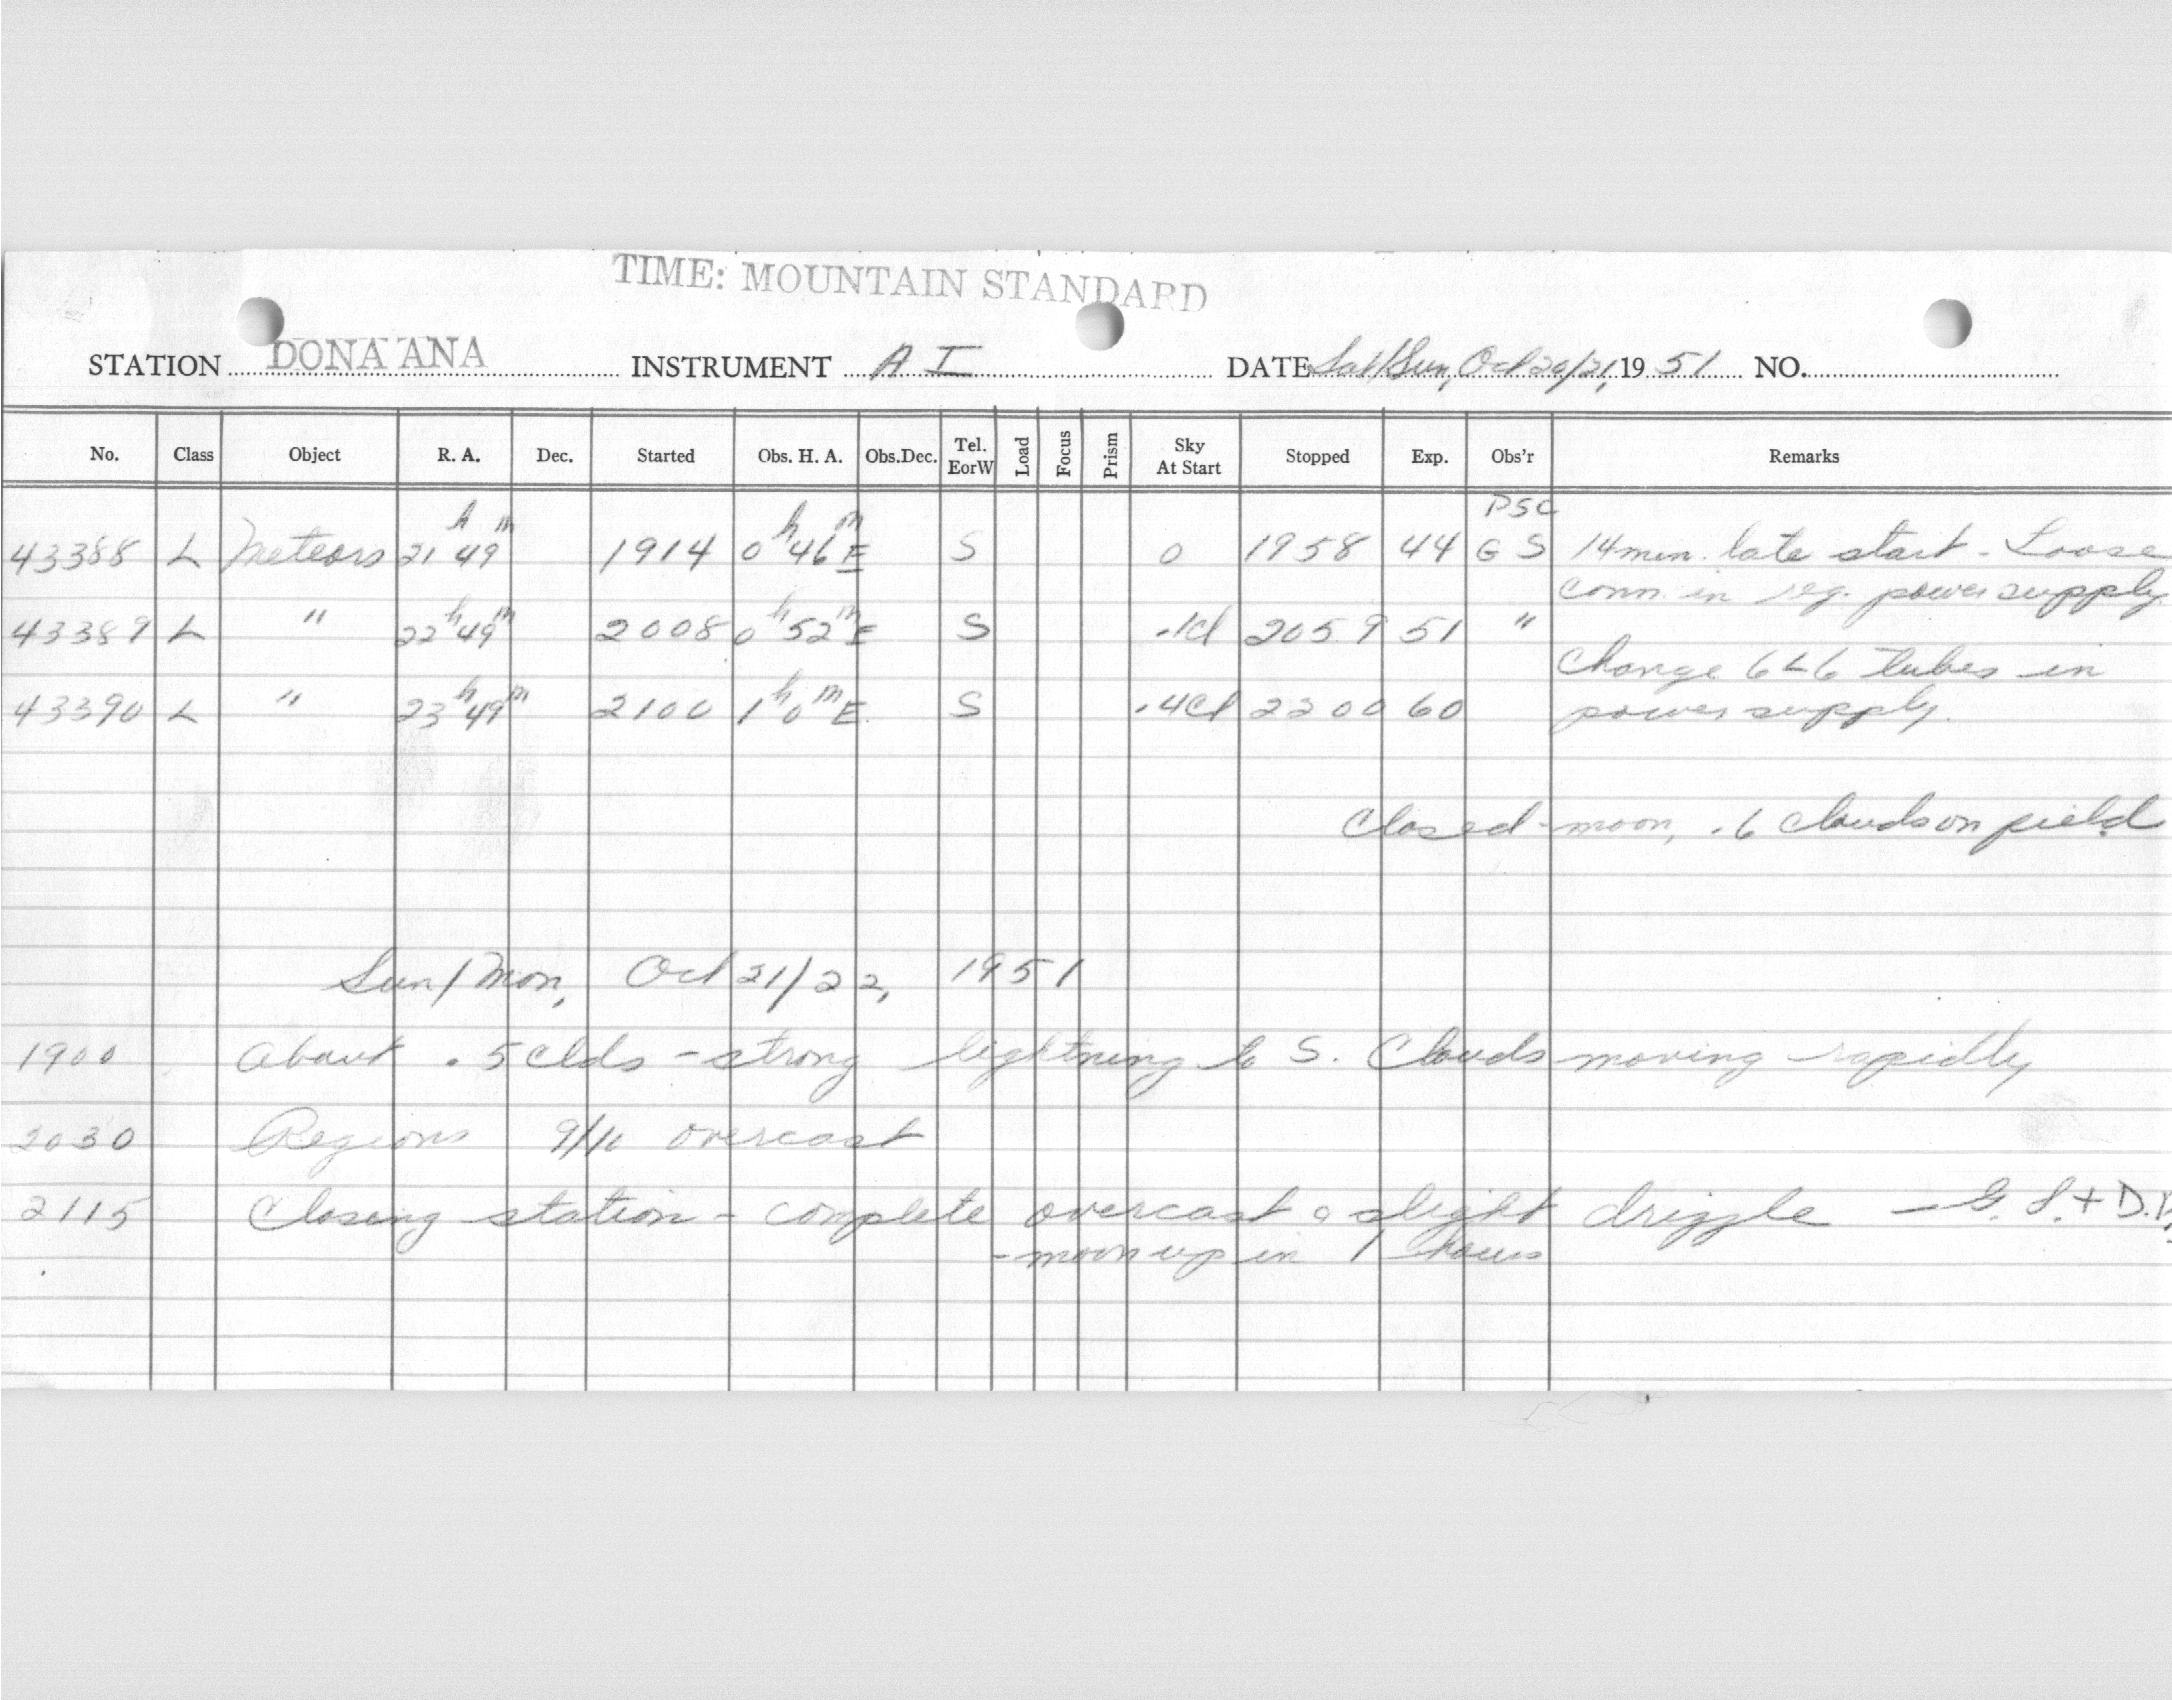 TIME: MOUNTAIN STANDARD
STATION DONA ANA INSTRUMENT A I DATE Sat/Sun, Oct 20/21, 19 51 NO.
No. Class Object R. A. Dec. Started Obs. H. A. Obs.Dec. Tel. EorW Load Focus Prism Sky At Start Stopped Exp. Obs'r Remarks
PSC
43388 L Meteors 21h 49m 1914 0h 46m E S 0 1958 44 G S 14 min. late start - Loose
conn. in reg. power supply.
43389 L " 22h 49m 2008 0h 52m E S .1cl 2059 51 "
Change 6L6 tubes in
43390 L " 23h 49m 2100 1h 0m E S .4cl 2200 60 power supply.
Closed - moon, .6 clouds on field
Sun/Mon, Oct 21/22, 1951
1900 About .5 clds - strong lightning to S. Clouds moving rapidly
2030 Regions 9/10 overcast
2115 Closing station - complete overcast & slight drizzle - G. S. + D.
- moon up in 1 hours